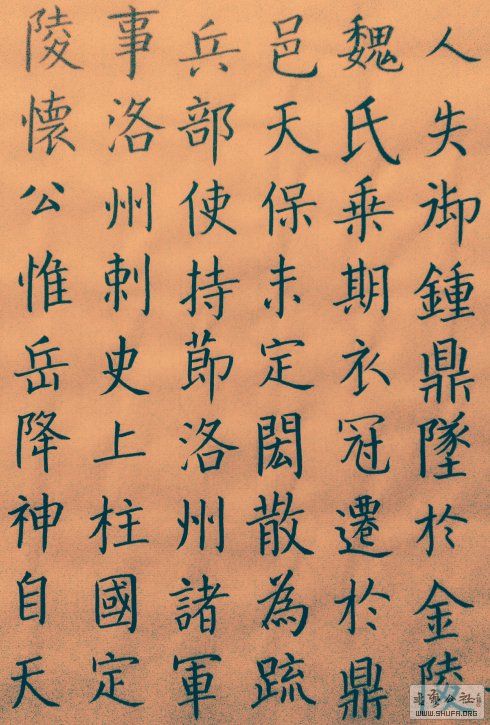 人失御鍾鼎墜於金陵
魏氏乗期衣冠遷於鼎
邑天保未定閎散為疏
兵部使持節洛州諸軍
事洛州刺史上柱國定
陵懷公惟岳降神自天
WWW.SHUFA.ORG